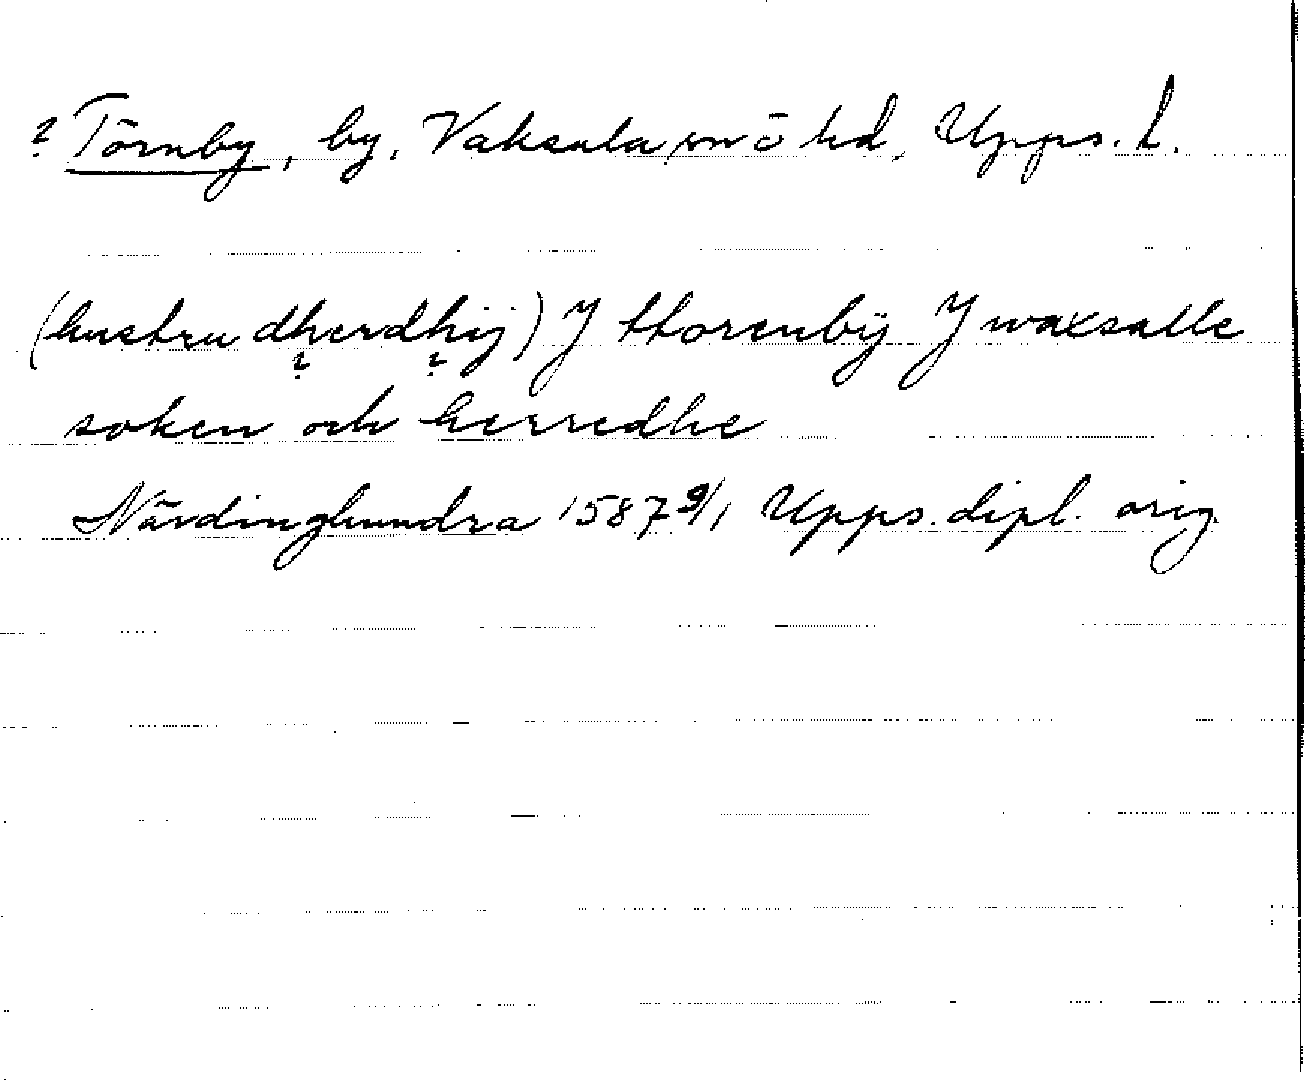 ? Törnby, by, Vaksala sn o hd, Upps. L.
(hustru dherdhij) J thorenbÿ J waxsalle
soken och herredhe
Närdinghundra 1587 9/1 Upps. dipl. orig.